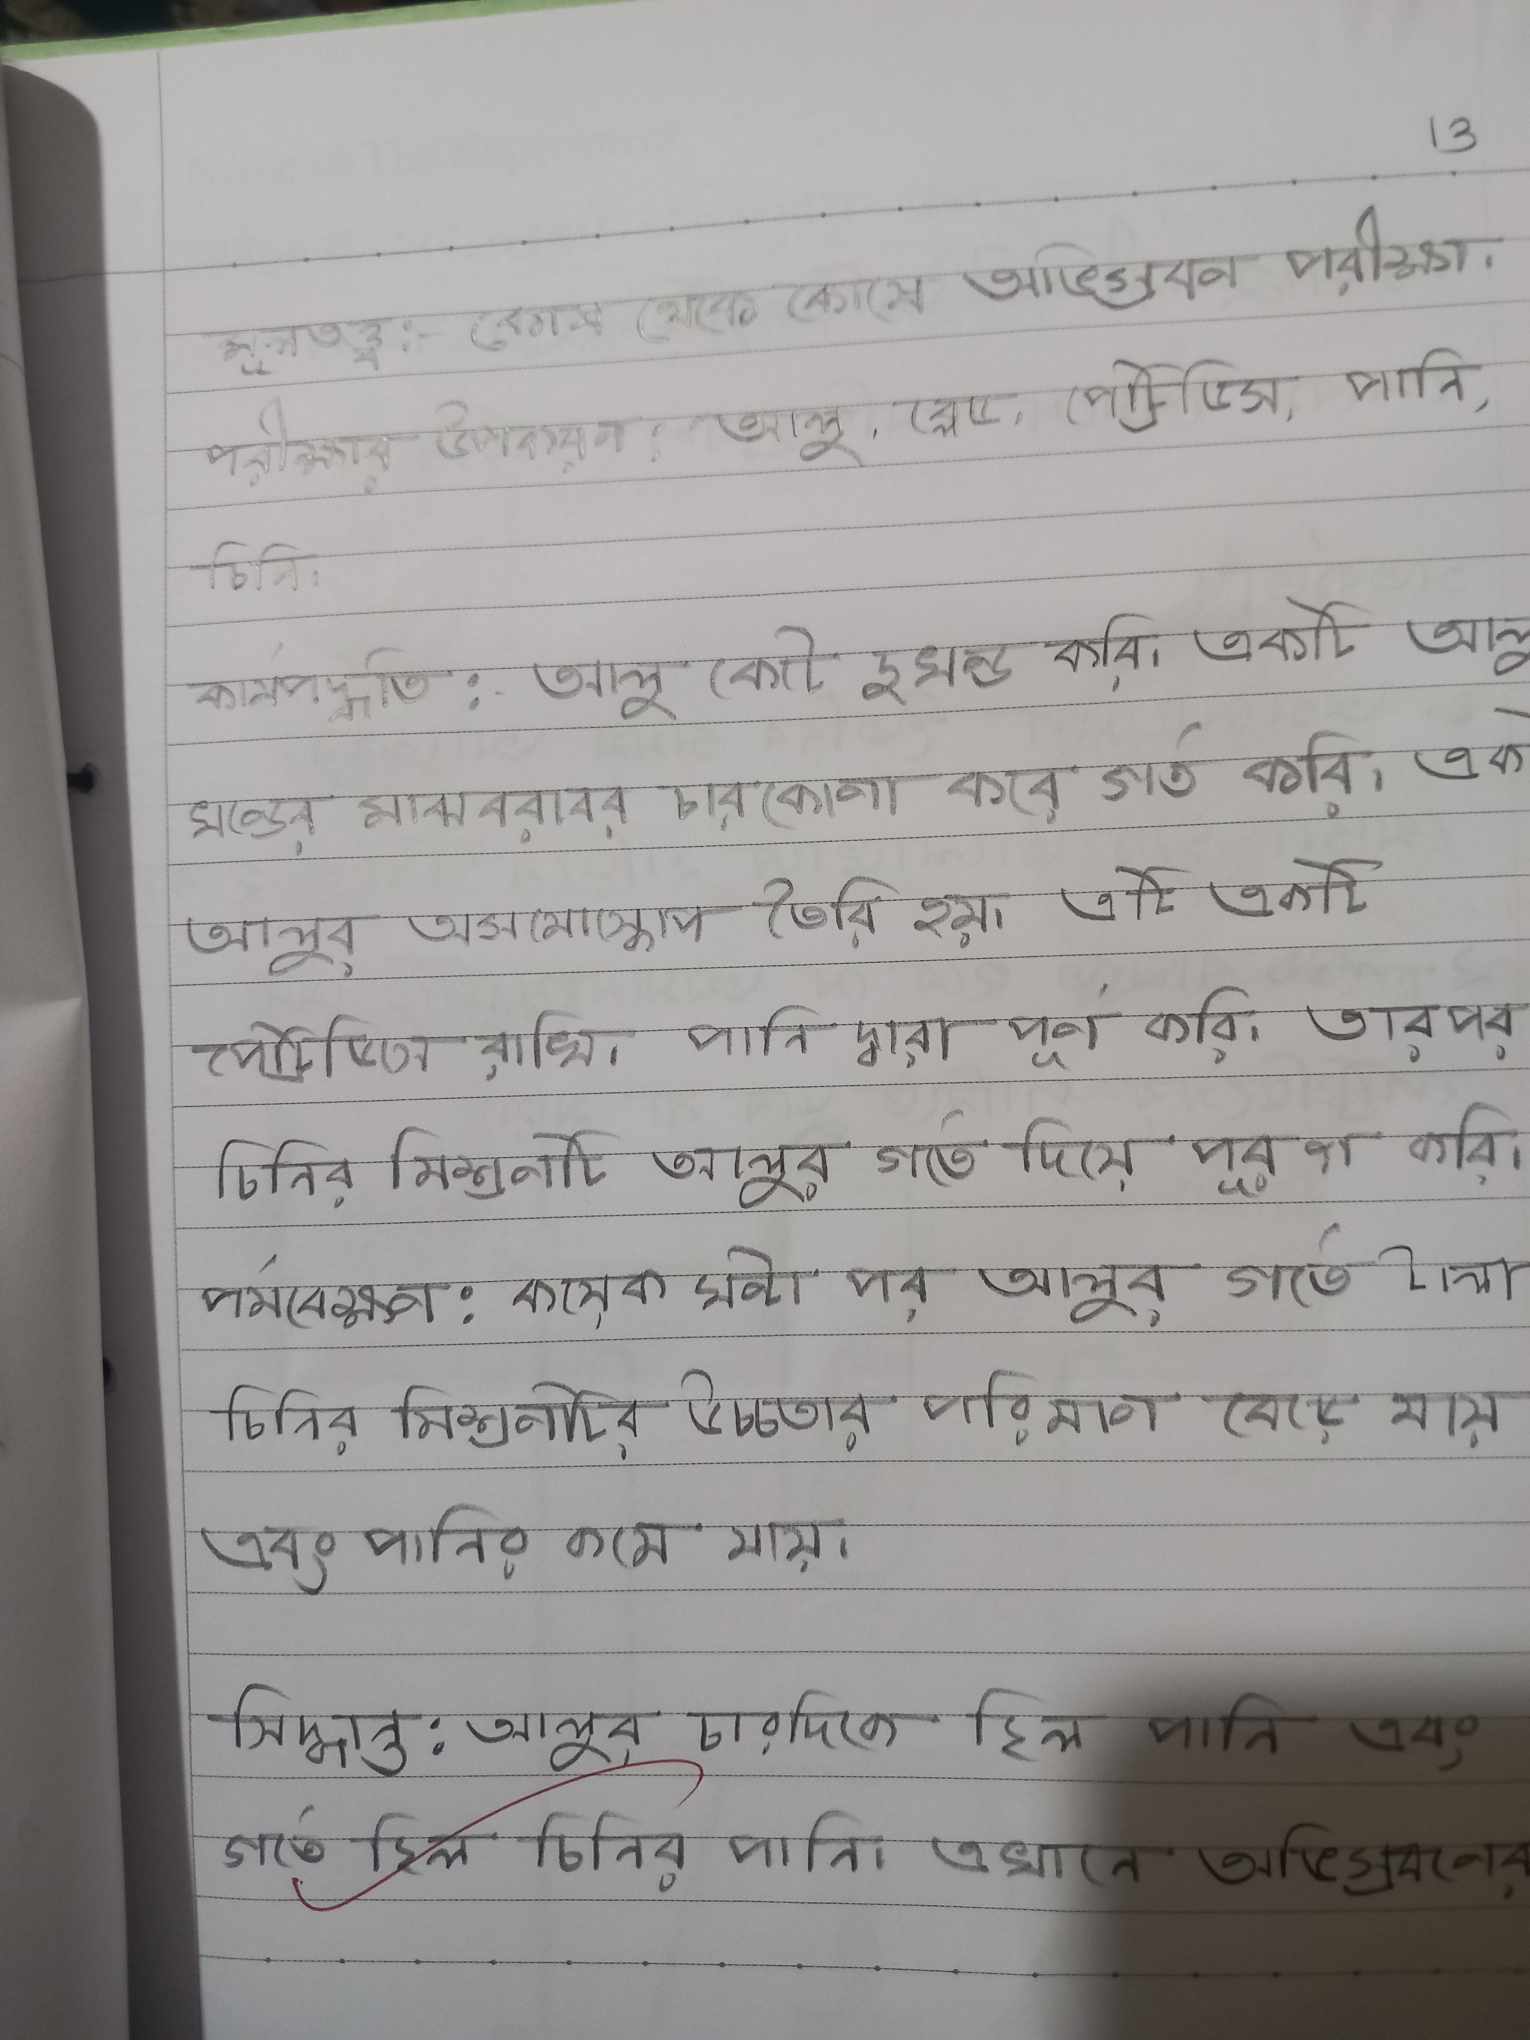 13
মূলতত্ত্ব:- কোষ থেকে কোষে অভিস্রবন পরীক্ষা।
পরীক্ষার উপকরন: আলু, ব্লেড, পেট্রিডিস, পানি,
চিনি।
কার্যপদ্ধতি:- আলু কেটে দুখন্ড করি। একটি আলু
খন্ডের মাঝবরাবর চারকোনা করে গর্ত করি। একে
আলুর অসমোস্কোপ তৈরি হয়। এটি একটি
পেট্রিডিসে রাখি। পানি দ্বারা পূর্ণ করি। তারপর
চিনির মিশ্রনটি আলুর গর্তে দিয়ে পূরণ করি।
পর্যবেক্ষন: কয়েক ঘন্টা পর আলুর গর্তে ঢালা
চিনির মিশ্রনটির উচ্চতার পরিমান বেড়ে যায়
এবং পানির কমে যায়।
সিদ্ধান্ত: আলুর চারদিকে ছিল পানি এবং
গর্তে ছিল চিনির পানি। এখানে অভিস্রবনের